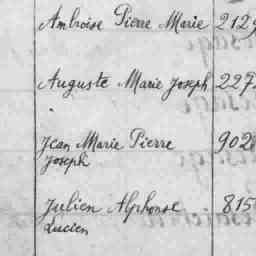 Ambroise Pierre Marie 2129
Auguste Marie Joseph 227
Jean Marie Pierre 902
Joseph
Julien Alphonse 815
Lucien